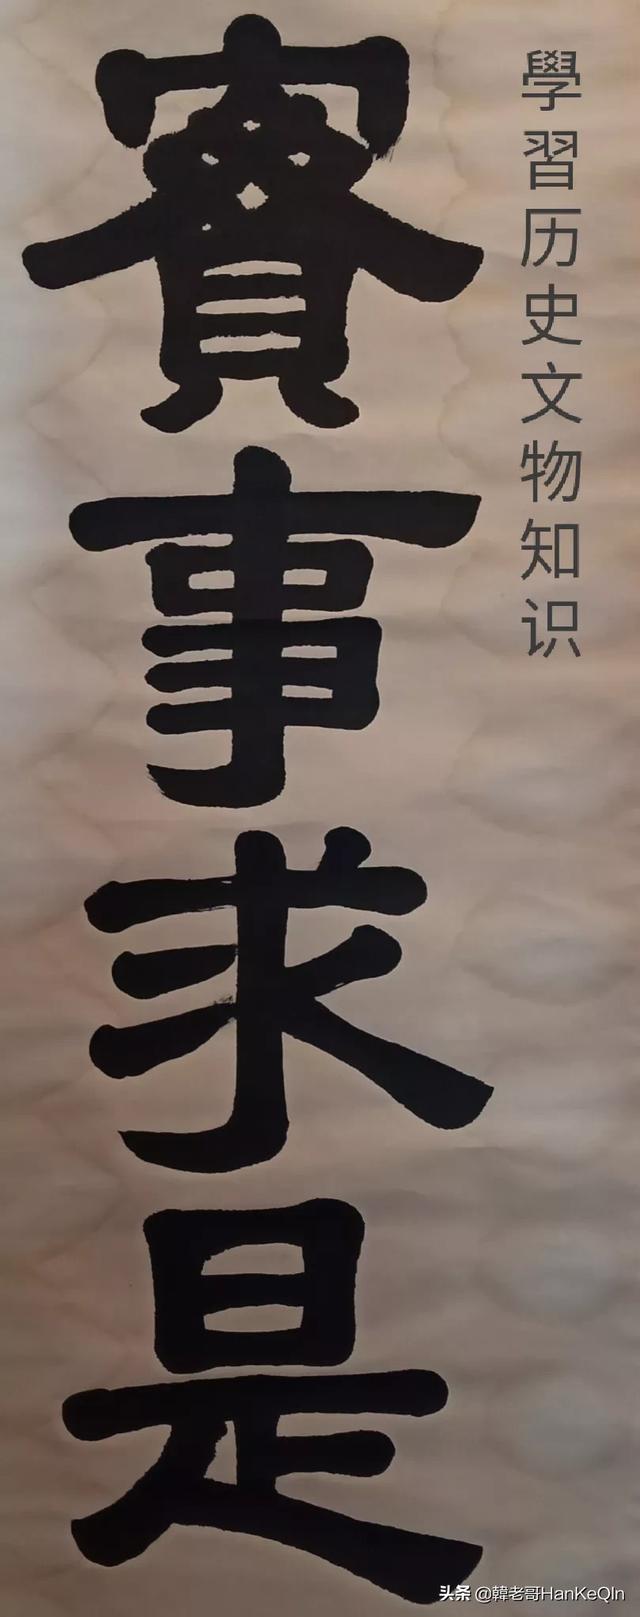 學習历史文物知识
實事求是
头条 @韓老哥HanKeQIn